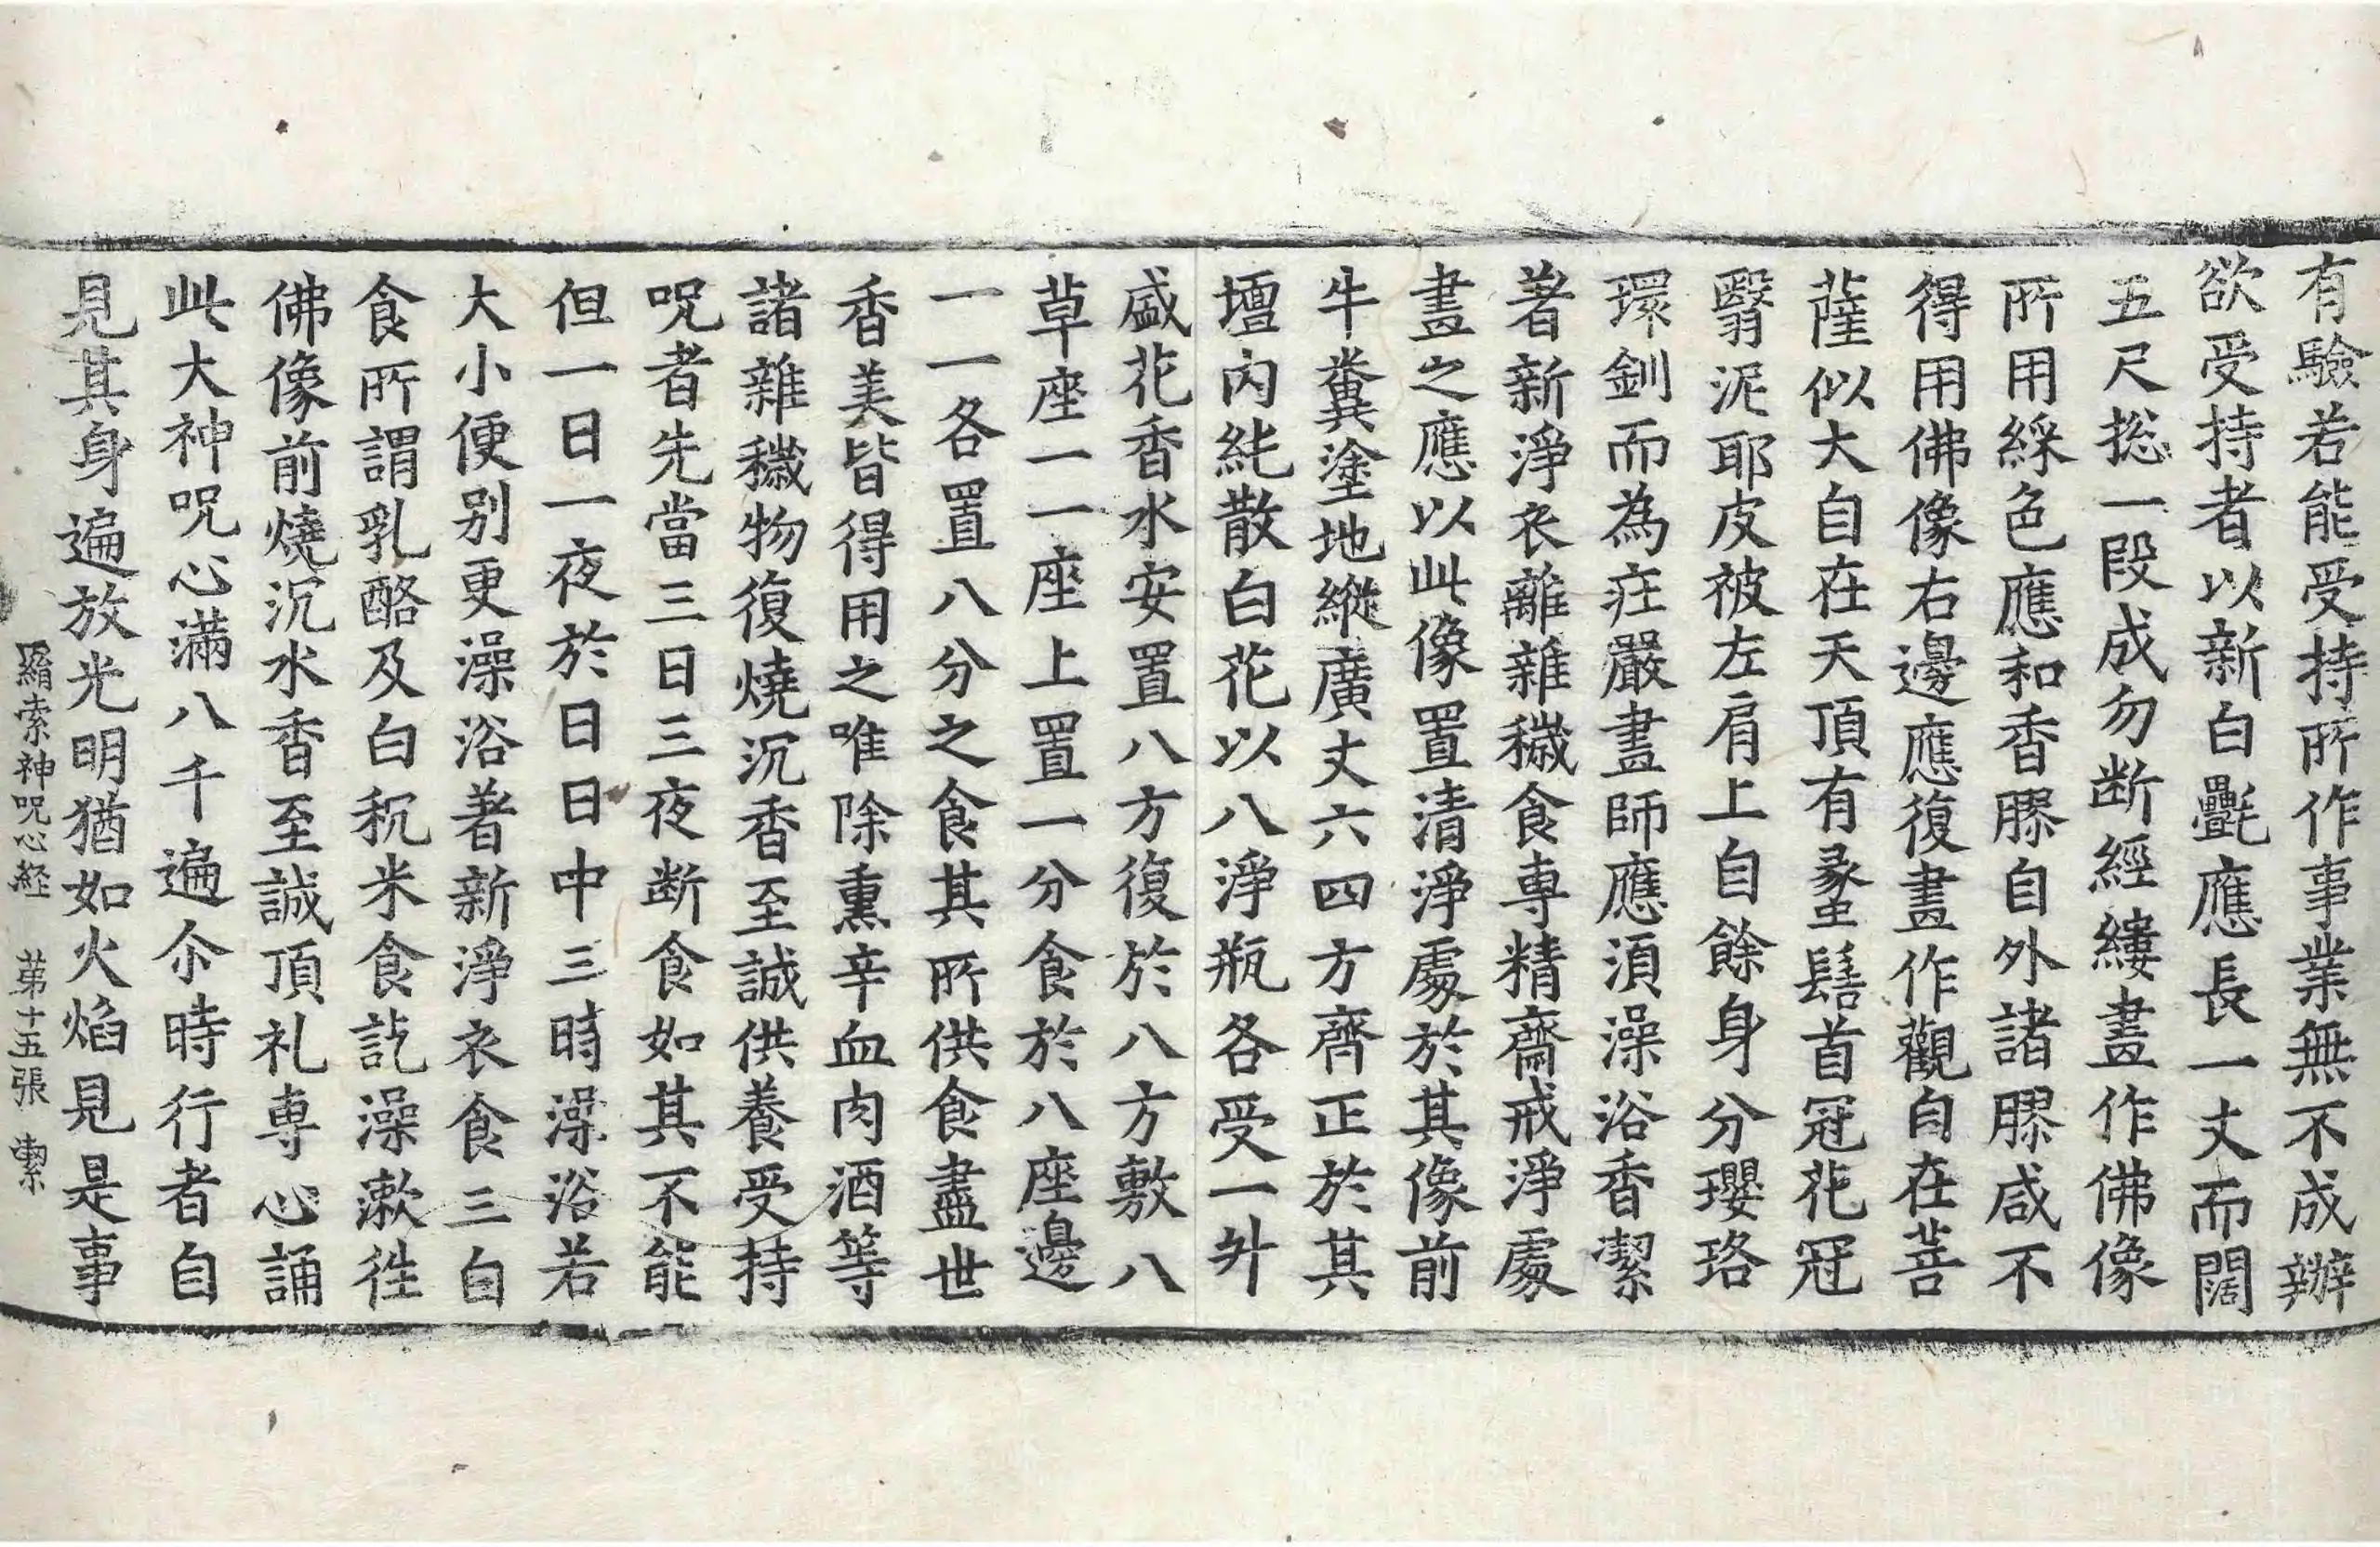 有驗若能受持所作事業無不成辦
欲受持者以新白㲲應長一丈而闊
五尺捴一段成勿断經縷畫作佛像
所用綵色應和香膠自外諸膠咸不
得用佛像右邊應復畫作觀自在菩
薩似大自在天頂有髮髻首冠花冠
翳泥耶皮被左肩上自餘身分瓔珞
環釧而為庄嚴畫師應須澡浴香潔
著新淨衣離雜穢食專精齋戒淨處
畫之應以此像置清淨處於其像前
牛糞塗地縱廣丈六四方齊正於其
壇內純散白花以八淨瓶各受一升
盛花香水安置八方復於八方敷八
草座一一座上置一分食於八座邊
一一各置八分之食其所供食盡世
香美皆得用之唯除熏辛血肉酒等
諸雜穢物復燒沉香至誠供養受持
呪者先當三日三夜断食如其不能
但一日一夜於日日中三時澡浴若
大小便别更澡浴著新淨衣食三白
食所謂乳酪及白秔米食訖澡漱徃
佛像前燒沉水香至誠頂礼専心誦
此大神呪心滿八千遍尒時行者自
見其身遍放光明猶如火焰見是事
羂索神呪心経 苐十五張 㓗